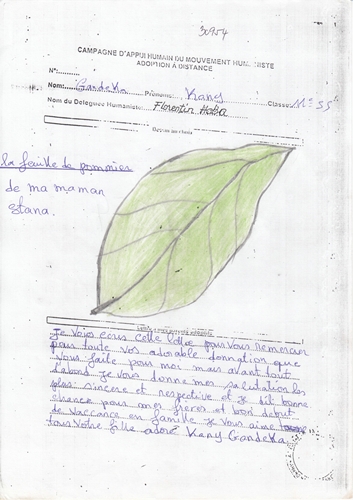 30954
CAMPAGNE D'APPUI HUMAIN DU MOUVEMENT HUMANISTE
ADOPTION A DISTANCE
N°:
Nom: Gandeka Prénoms: Kany Classe: 11e SS
Nom du Délégué Humaniste: Florentin Haba
la feuille de pommier
de ma maman
stana.
Je vois ecris cette lettre pour vous remercier
pour toute vos adorable donnation que
vous faite pour moi mais avant tout
d'abord je vois donne mes salutation les
plus sincere et respective et je dit bonne
chance pour mes freres et bon debut
de vaccance en famille je vous aime
tous votre fille adoré Kany Gandeka